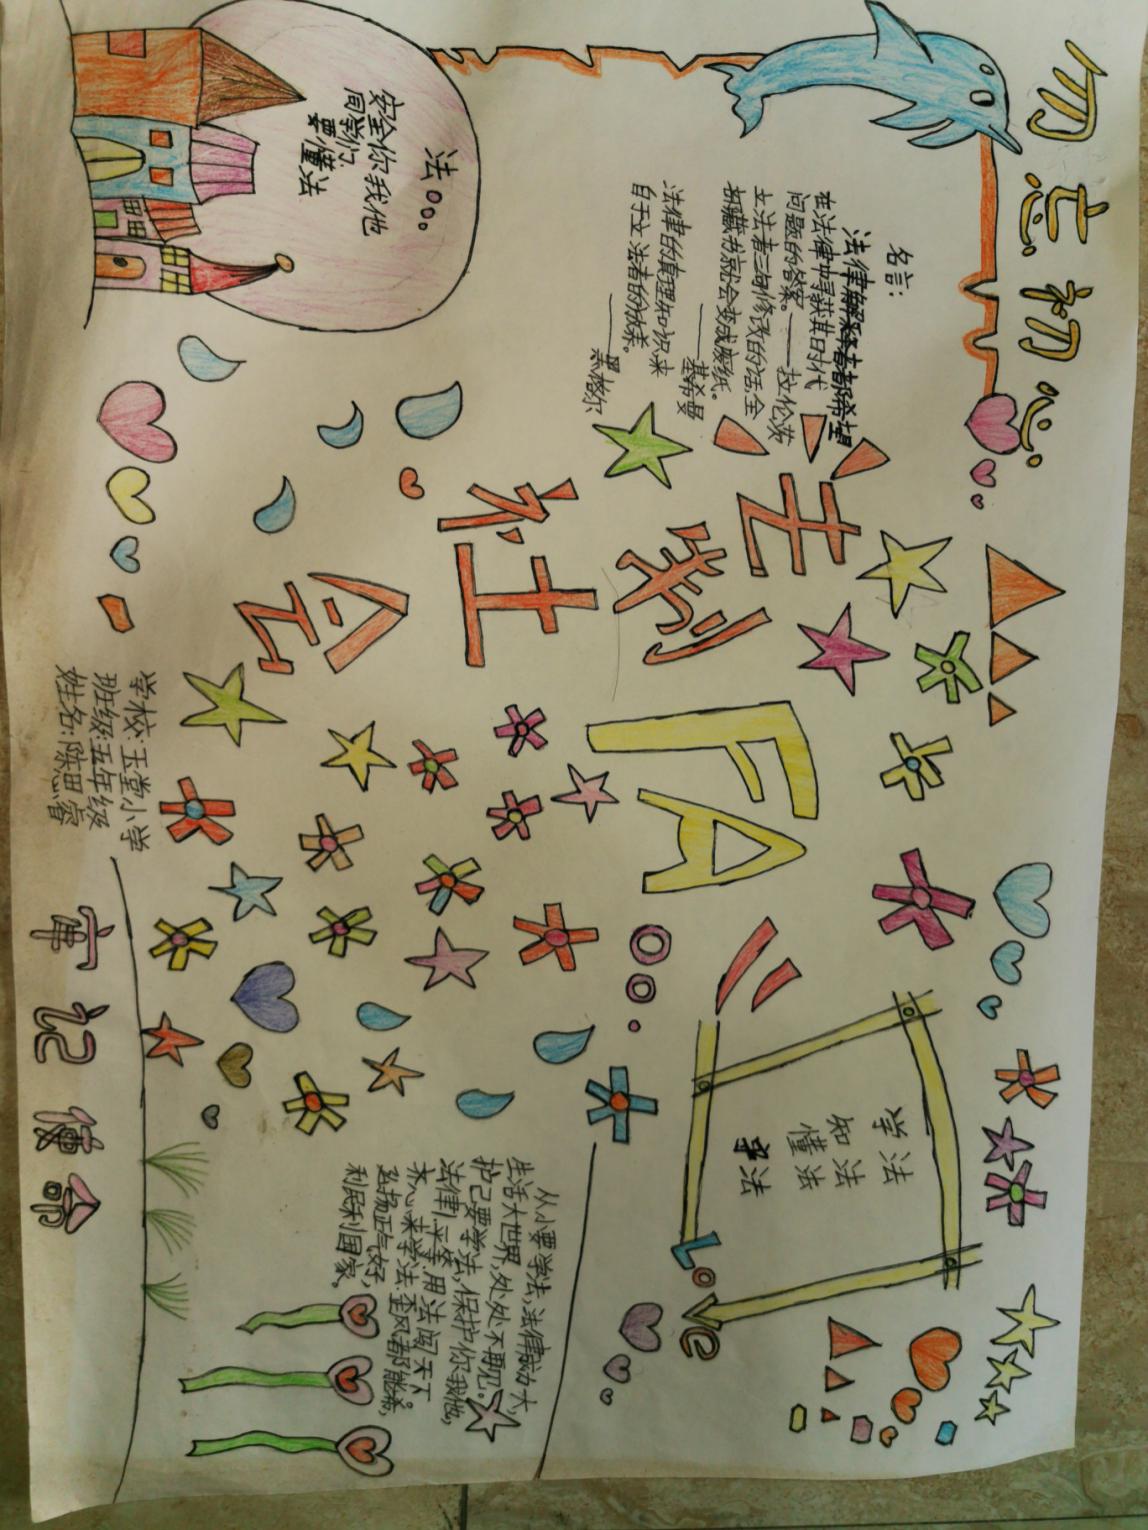 勿忘初心
名言:
法律解释者都希望
在法律中寻获其时代
问题的答案。——拉伦茨
立法者三句修改的话,全
部藏书就会变成废纸。
——基希曼
法律的真理知识,来
自于立法者的教养。
——黑格尔
法
安全你我他
同学们
要懂法
法制
社会
FA
学法
知法
懂法
守法
LoVe
从小要学法,法律威力大,
生活大世界,处处不再见。
护己要学法,保护你我他,
法律上平等,用法闯天下。
齐心来学法,歪风都能稀,
弘扬正气好,
利民利国家。
学校:玉堂小学
班级:五年级
姓名:陈思睿
牢记使命